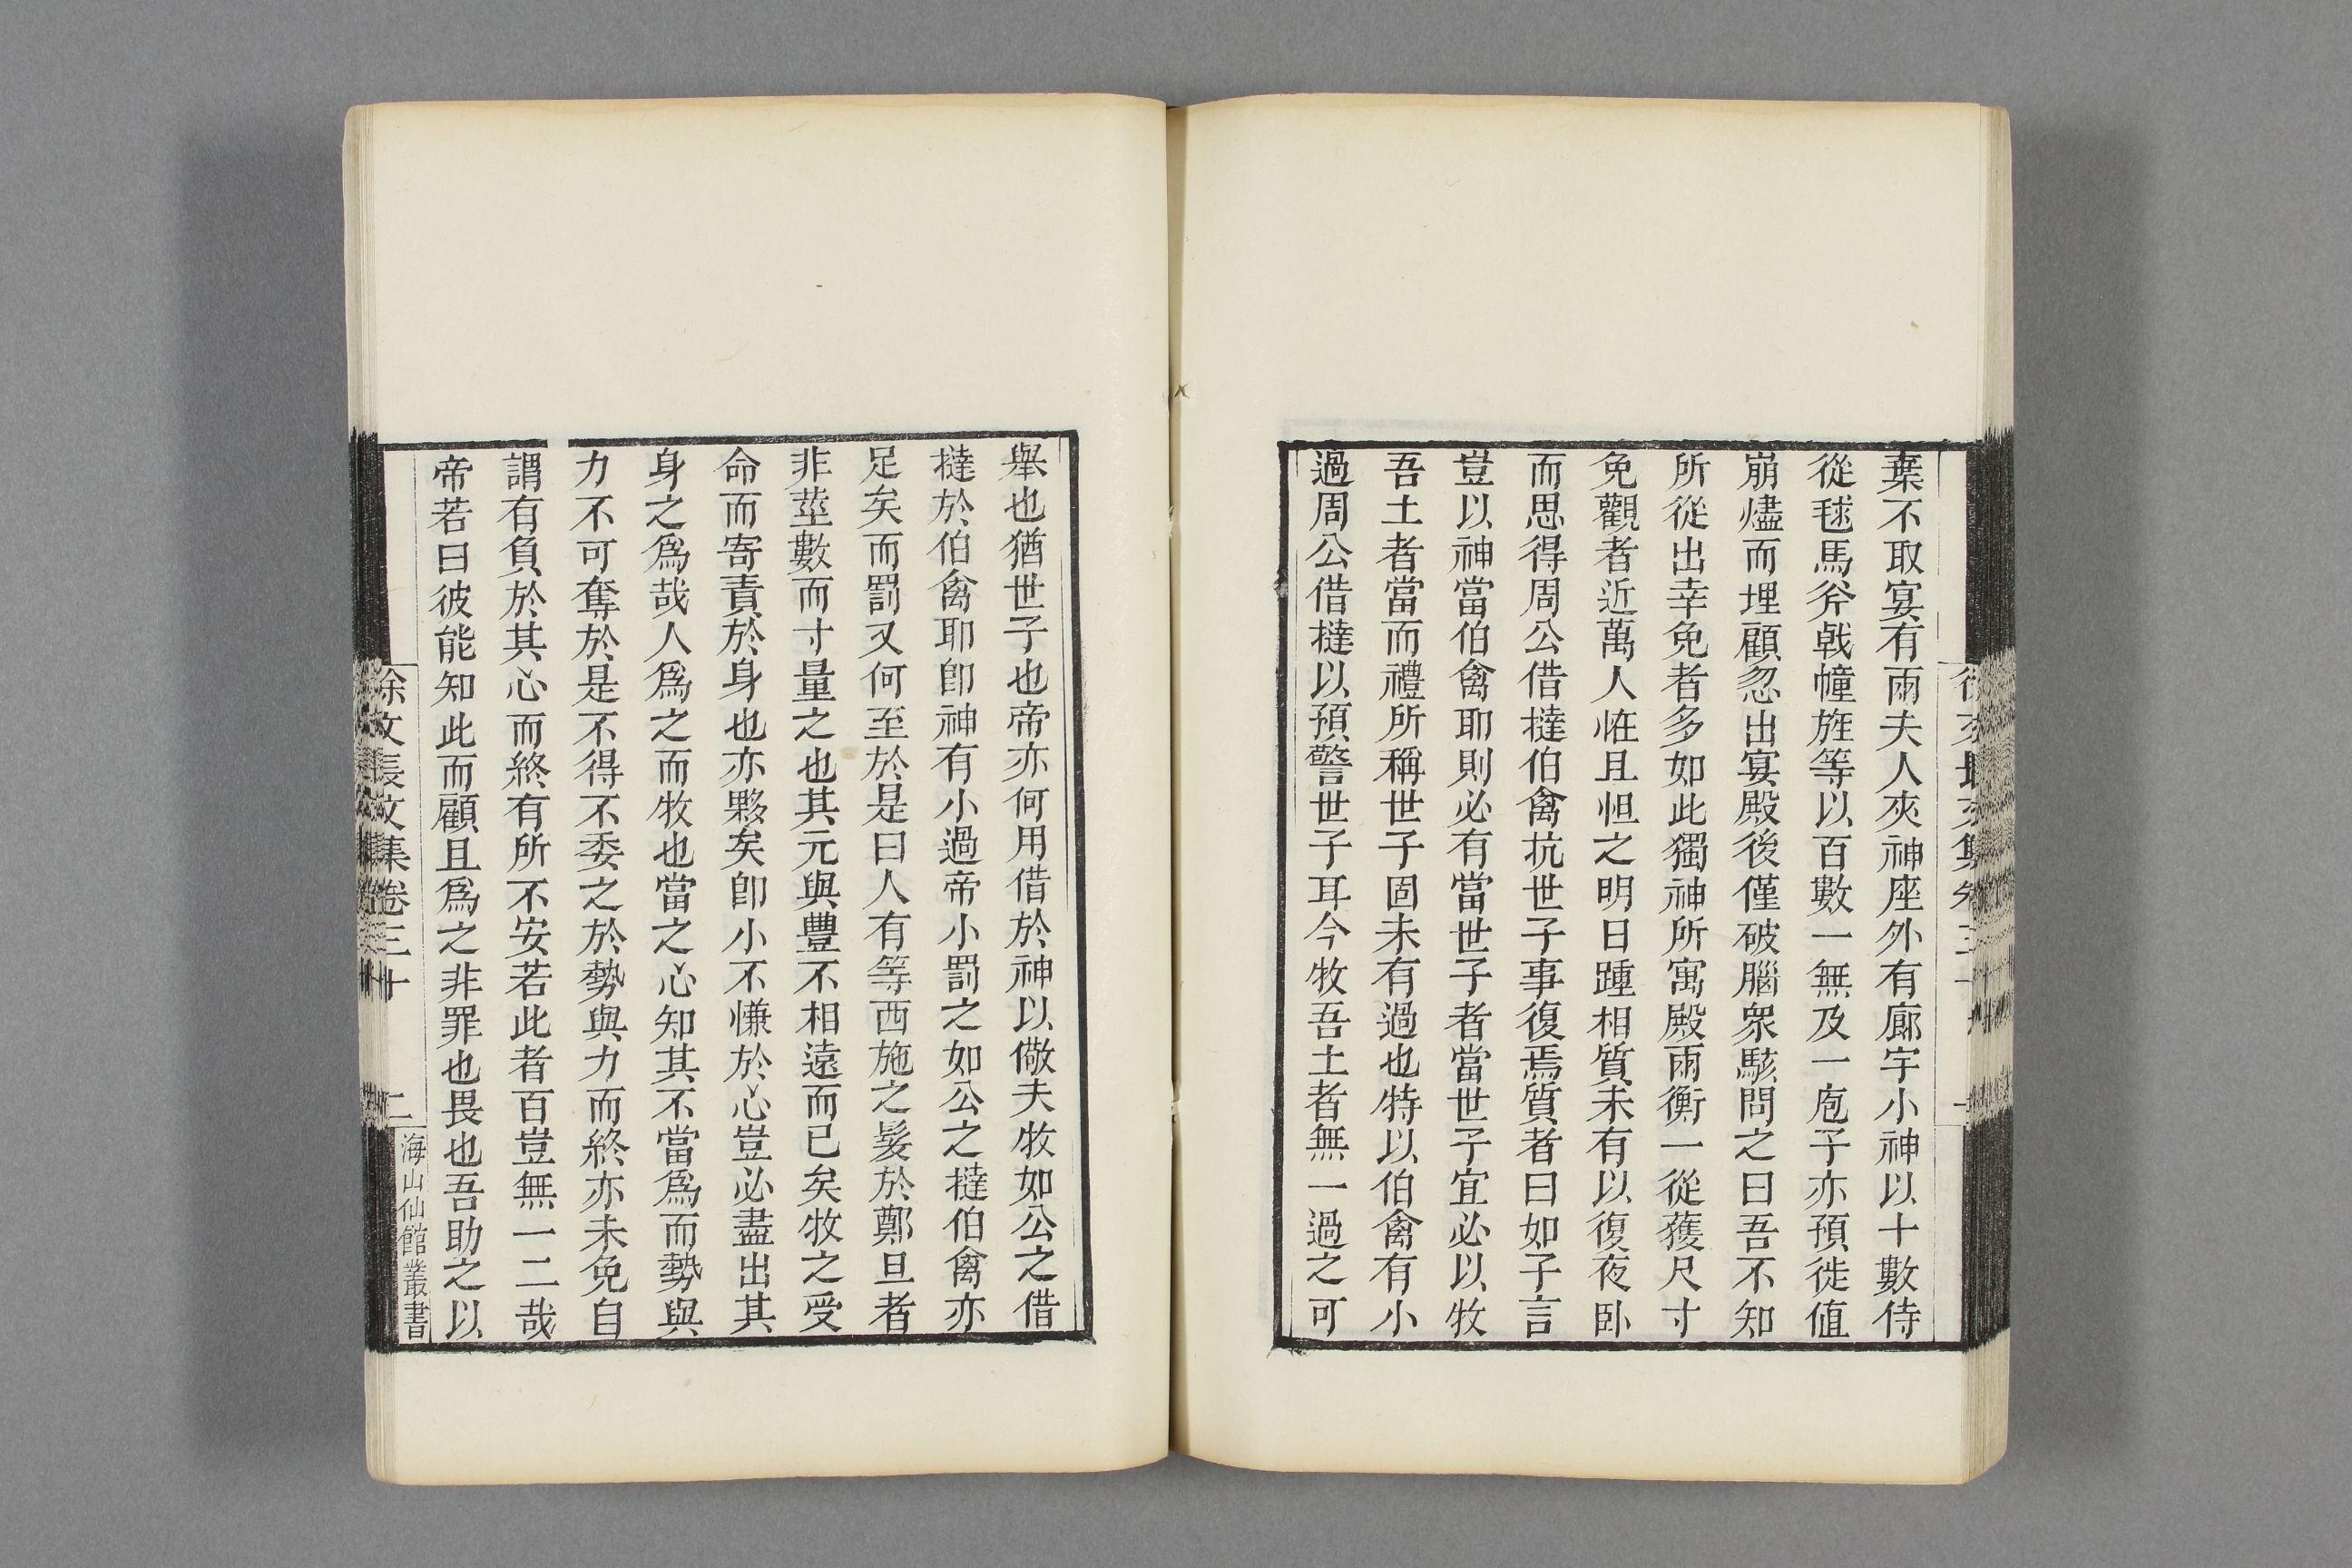 棄不取宴有兩夫人夾神座外有廊宇小神以十數侍
從毬馬斧戟幢旌等以百數一無及一庖子亦預徙值
崩燼而埋顧忽出宴殿後僅破腦衆駭問之曰吾不知
所從出幸免者多如此獨神所寓殿兩衡一從蒦尺寸
免觀者近萬人恠且怛之明日踵相質未有以復夜卧
而思得周公借撻伯禽抗世子事復焉質者曰如子言
豈以神當伯禽耶則必有當世子者當世子宜必以牧
吾土者當而禮所稱世子固未有過也特以伯禽有小
過周公借撻以預警世子耳今牧吾土者無一過之可
舉也猶世子也帝亦何用借於神以儆夫牧如公之借
撻於伯禽耶卽神有小過帝小罰之如公之撻伯禽亦
足矣而罰又何至於是曰人有等西施之髮於鄭旦者
非莖數而寸量之也其元與豐不相遠而已矣牧之受
命而寄責於身也亦夥矣卽小不慊於心豈必盡出其
身之爲哉人爲之而牧也當之心知其不當爲而勢與
力不可奪於是不得不委之於勢與力而終亦未免自
謂有負於其心而終有所不安若此者百豈無一二哉
帝若曰彼能知此而顧且爲之非罪也畏也吾助之以
徐文長文集卷三十 二 海山仙館叢書